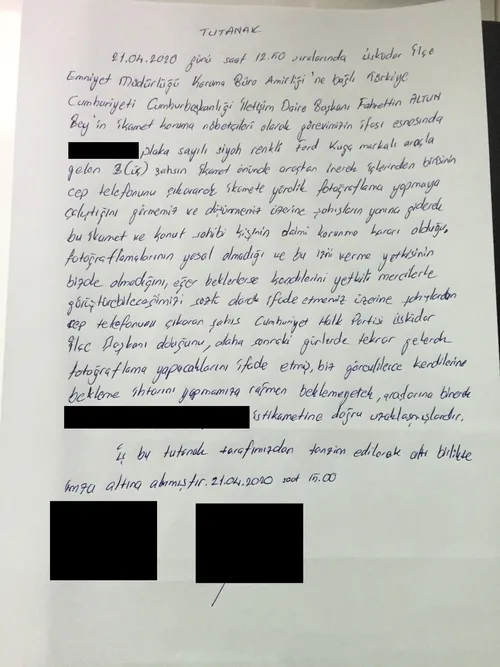 TUTANAK
21.04.2020 günü saat 12.50 sıralarında Üsküdar İlçe
Emniyet Müdürlüğü Koruma Büro Amirliği'ne bağlı Türkiye
Cumhuriyeti Cumhurbaşkanlığı İletişim Daire Başkanı Fahrettin ALTUN
Bey'in ikamet koruma nöbetçileri olarak görevimizin ifası esnasında
plaka sayılı siyah renkli Ford Kuga markalı araçla
gelen 3(üç) şahsın ikamet önünde araçtan inerek içlerinden birisinin
cep telefonunu çıkararak ikamete yönelik fotoğraflama yapmaya
çalıştığını görmemiz ve üzerine şahısların yanına giderek
bu ikamet ve konut sahibi kişinin daimi korunma kararı olduğu,
fotoğraflamalarının yasal olmadığı ve bu izni verme yetkisinin
bizde olmadığını, eğer beklerlerse kendilerini yetkili mercilerle
görüştürebileceğimizi sözlü olarak ifade etmemiz üzerine şahıslardan
cep telefonunu çıkaran şahıs Cumhuriyet Halk Partisi Üsküdar
İlçe Başkanı olduğunu, daha sonraki günlerde tekrar gelerek
fotoğraflama yapacaklarını ifade etmiş, biz görevlilerce kendilerine
bekleme ihtarını yapmamıza rağmen beklemeyerek, araçlarına binerek
istikametine doğru uzaklaşmışlardır.
İş bu tutanak tarafımızdan tanzim edilerek altı birlikte
imza altına alınmıştır. 21.04.2020 saat 15.00